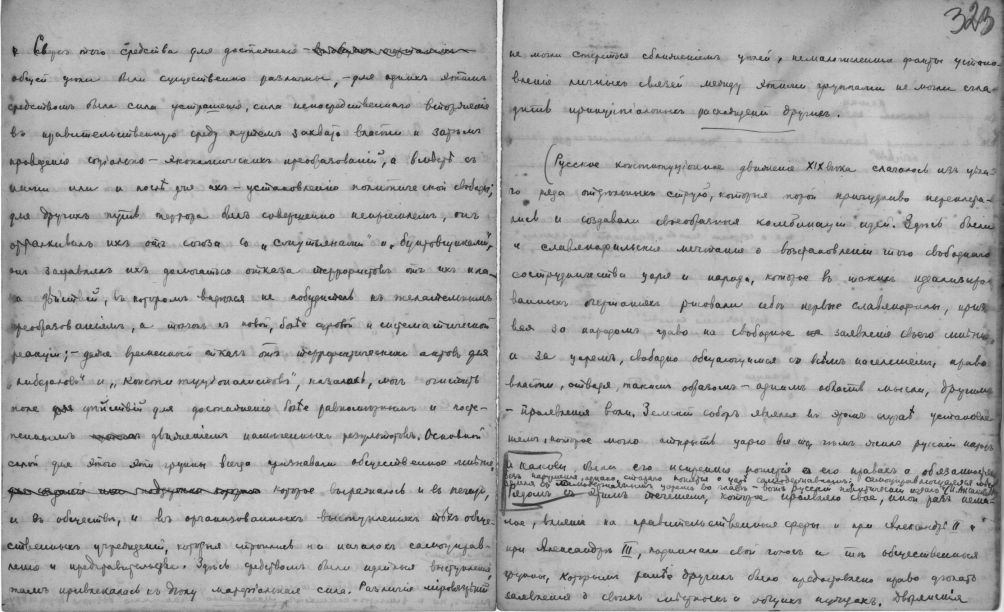 Сверх того средства для достижения
общей цели были существенно различны, – для одних этим
средством была сила устрашения, сила непосредственного вторжения
в правительственную среду путем захвата власти и затем
проведение социально – экономических преобразований, а вместе с
ними или и после уже их – установление политической свободы;
для других путь террора был совершенно неприемлем, он
отталкивал их от союза со „смутьянами" и „бунтовщиками",
он заставлял их домогаться отказа террористов от их
действий, в котором виделся не побудитель к желательным
преобразованиям, а толчок к новой, более суровой и систематической
реакции; – даже временный отказ от террористических актов для
„либералов" и „конституционалистов", казалось, мог очистить
поле действий для достижения более равномерным и посте-
пенным движением намеченных результатов. Основной
силой для этого эти группы всегда признавали общественное мнение,
которое выражалось и в печати,
и в обществе, и в организованных выступлениях тех обще-
ственных учреждений, которые строились на началах самоуправ-
ления и представительства. Здесь средством были идейные выступления,
там привлекалась к делу материальная сила. Различие мировоззрений
323
не могли стереться сближением целей, немалочисленные факты устано-
вления личных связей между этими группами не могли сгла-
дить принципиальных расхождений других.
(Русское конституционное движение XIX века слагалось из цела-
го ряда отдельных струй, которые порой причудливо переплета-
лись и создавали своеобразные комбинации идей. Здесь были
и славянофильские мечтания о восстановлении того свободнаго
сотрудничества царя и народа, которое в таких идеализиро-
ванных очертаниях рисовали себе первые славянофилы, приз-
навая за народом право на свободное заявление своего мнения,
а за царем, свободно общающимся со всем населением, право
власти, отводя, таким образом – одним область мысли, другим
– проявления воли. Земский собор являлся в этом случае установле-
нием, которое могло открыть царю все то, чем жило русский народ
и каковы были его искренние понятия о его правах и обязанностях
Рядом с этим течением, которое проявляло свое, иной раз нема-
лое, влияние на правительственные сферы и при Александре II и
при Александре III, поднимали свой голос и те общественные
группы, которым ранее других было предоставлено право делать
заявления о своих местных и общих нуждах, Дворянския